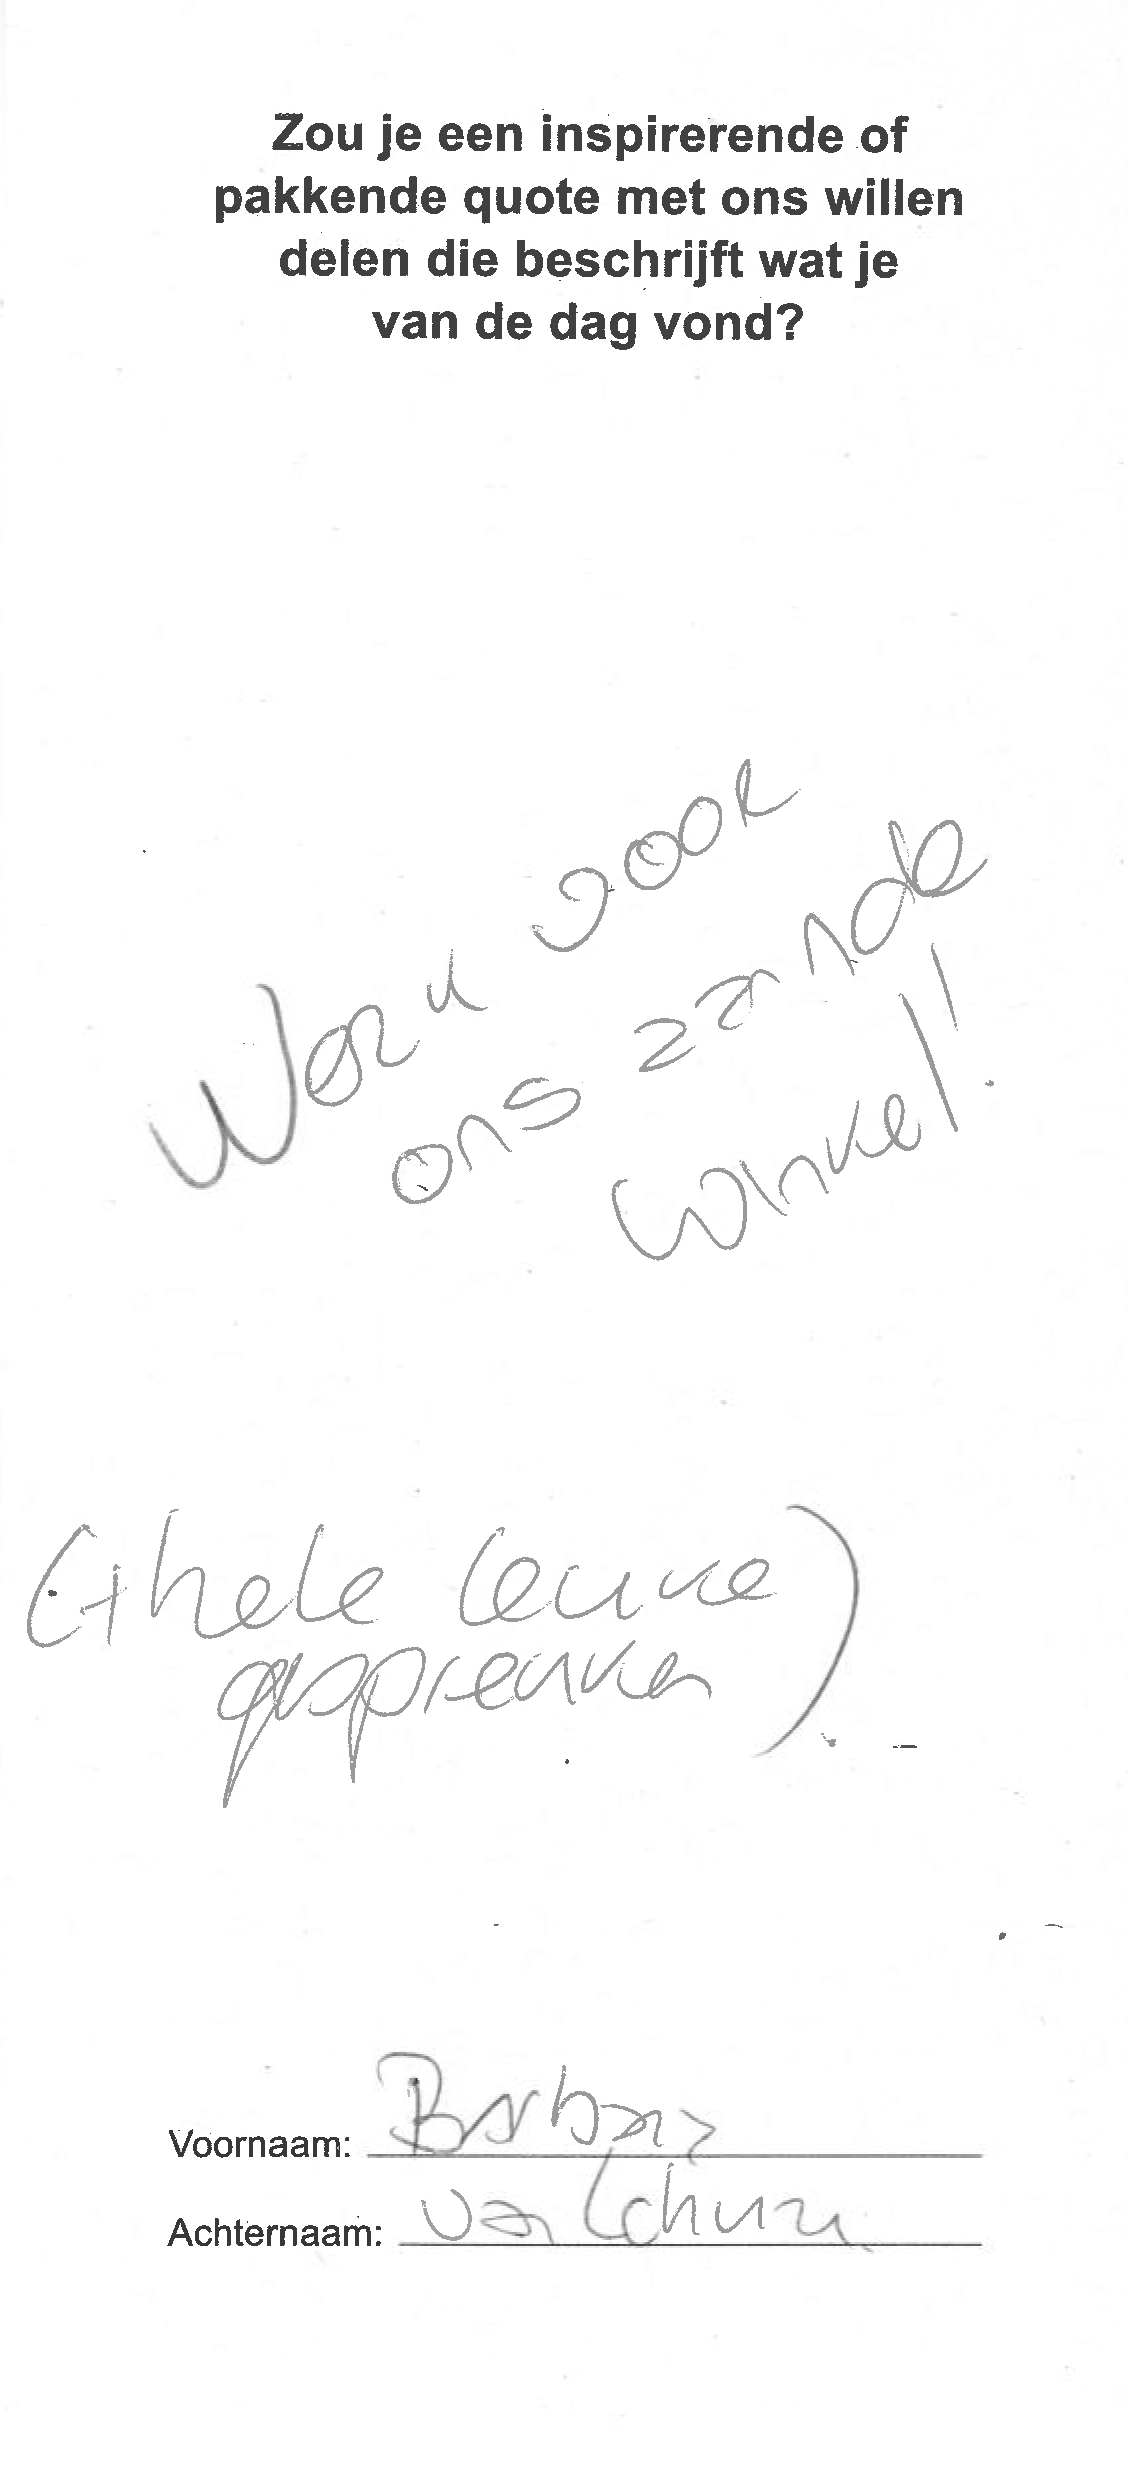 Zou je een inspirerende of
pakkende quote met ons willen
delen die beschrijft wat je
van de dag vond?
Werk voor
ons aan de
winkel!
(+ hele leuke
gesprekken)
Voornaam: Barbara
Achternaam: van